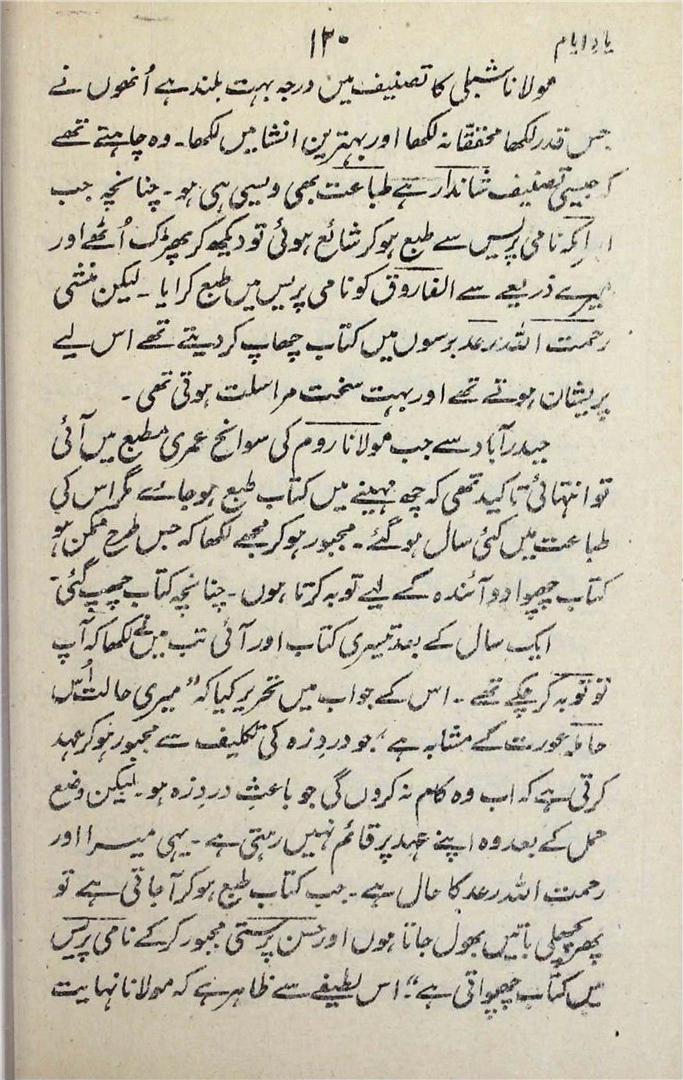 یادِ ایام
۱۲۰
مولانا شبلی کا تصنیف میں درجہ بہت بلند ہے اُنھوں نے
جس قدر لکھا محققانہ لکھا اور بہترین انشا میں لکھا۔ وہ چاہتے تھے
کہ جیسی تصنیف شاندار ہے طباعت بھی ویسی ہی ہو۔ چنانچہ جب
البرامکہ نامی پریس سے طبع ہوکر شائع ہوئی تو دیکھ کر پھڑک اُٹھے اور
میرے ذریعے سے الفاروق کو نامی پریس میں طبع کرایا۔ لیکن منشی
رحمت اللہ رعد برسوں میں کتاب چھاپ کر دیتے تھے اس لیے
پریشان ہوتے تھے اور بہت سخت مراسلت ہوتی تھی۔
حیدرآباد سے جب مولانا روم کی سوانح عمری مطبع میں آئی
تو انتہائی تاکید تھی کہ چھ مہینے میں کتاب طبع ہوجائے مگر اس کی
طباعت میں کئی سال ہوگئے۔ مجبور ہوکر مجھے لکھا کہ جس طرح ممکن ہو
کتاب چھپوا دو آئندہ کے لیے توبہ کرتا ہوں۔ چنانچہ کتاب چھپ گئی۔
ایک سال کے بعد تیسری کتاب اور آئی تب میں نے لکھا کہ آپ
تو توبہ کرچکے تھے۔ اس کے جواب میں تحریر کیا کہ ”میری حالت اُس
حاملہ عورت کے مشابہ ہے، جو دردِزہ کی تکلیف سے مجبور ہوکر عہد
کرتی ہے کہ اب وہ کام نہ کروں گی جو باعثِ دردِزہ ہو۔ لیکن وضع
حمل کے بعد وہ اپنے عہد پر قائم نہیں رہتی ہے۔ یہی میرا اور
رحمت اللہ رعد کا حال ہے۔ جب کتاب طبع ہوکر آجاتی ہے تو
پھر پچھلی باتیں بھول جاتا ہوں اور حسن پرستی مجبور کرکے نامی پریس
میں کتاب چھپواتی ہے“۔ اس لطیفے سے ظاہر ہے کہ مولانا نہایت